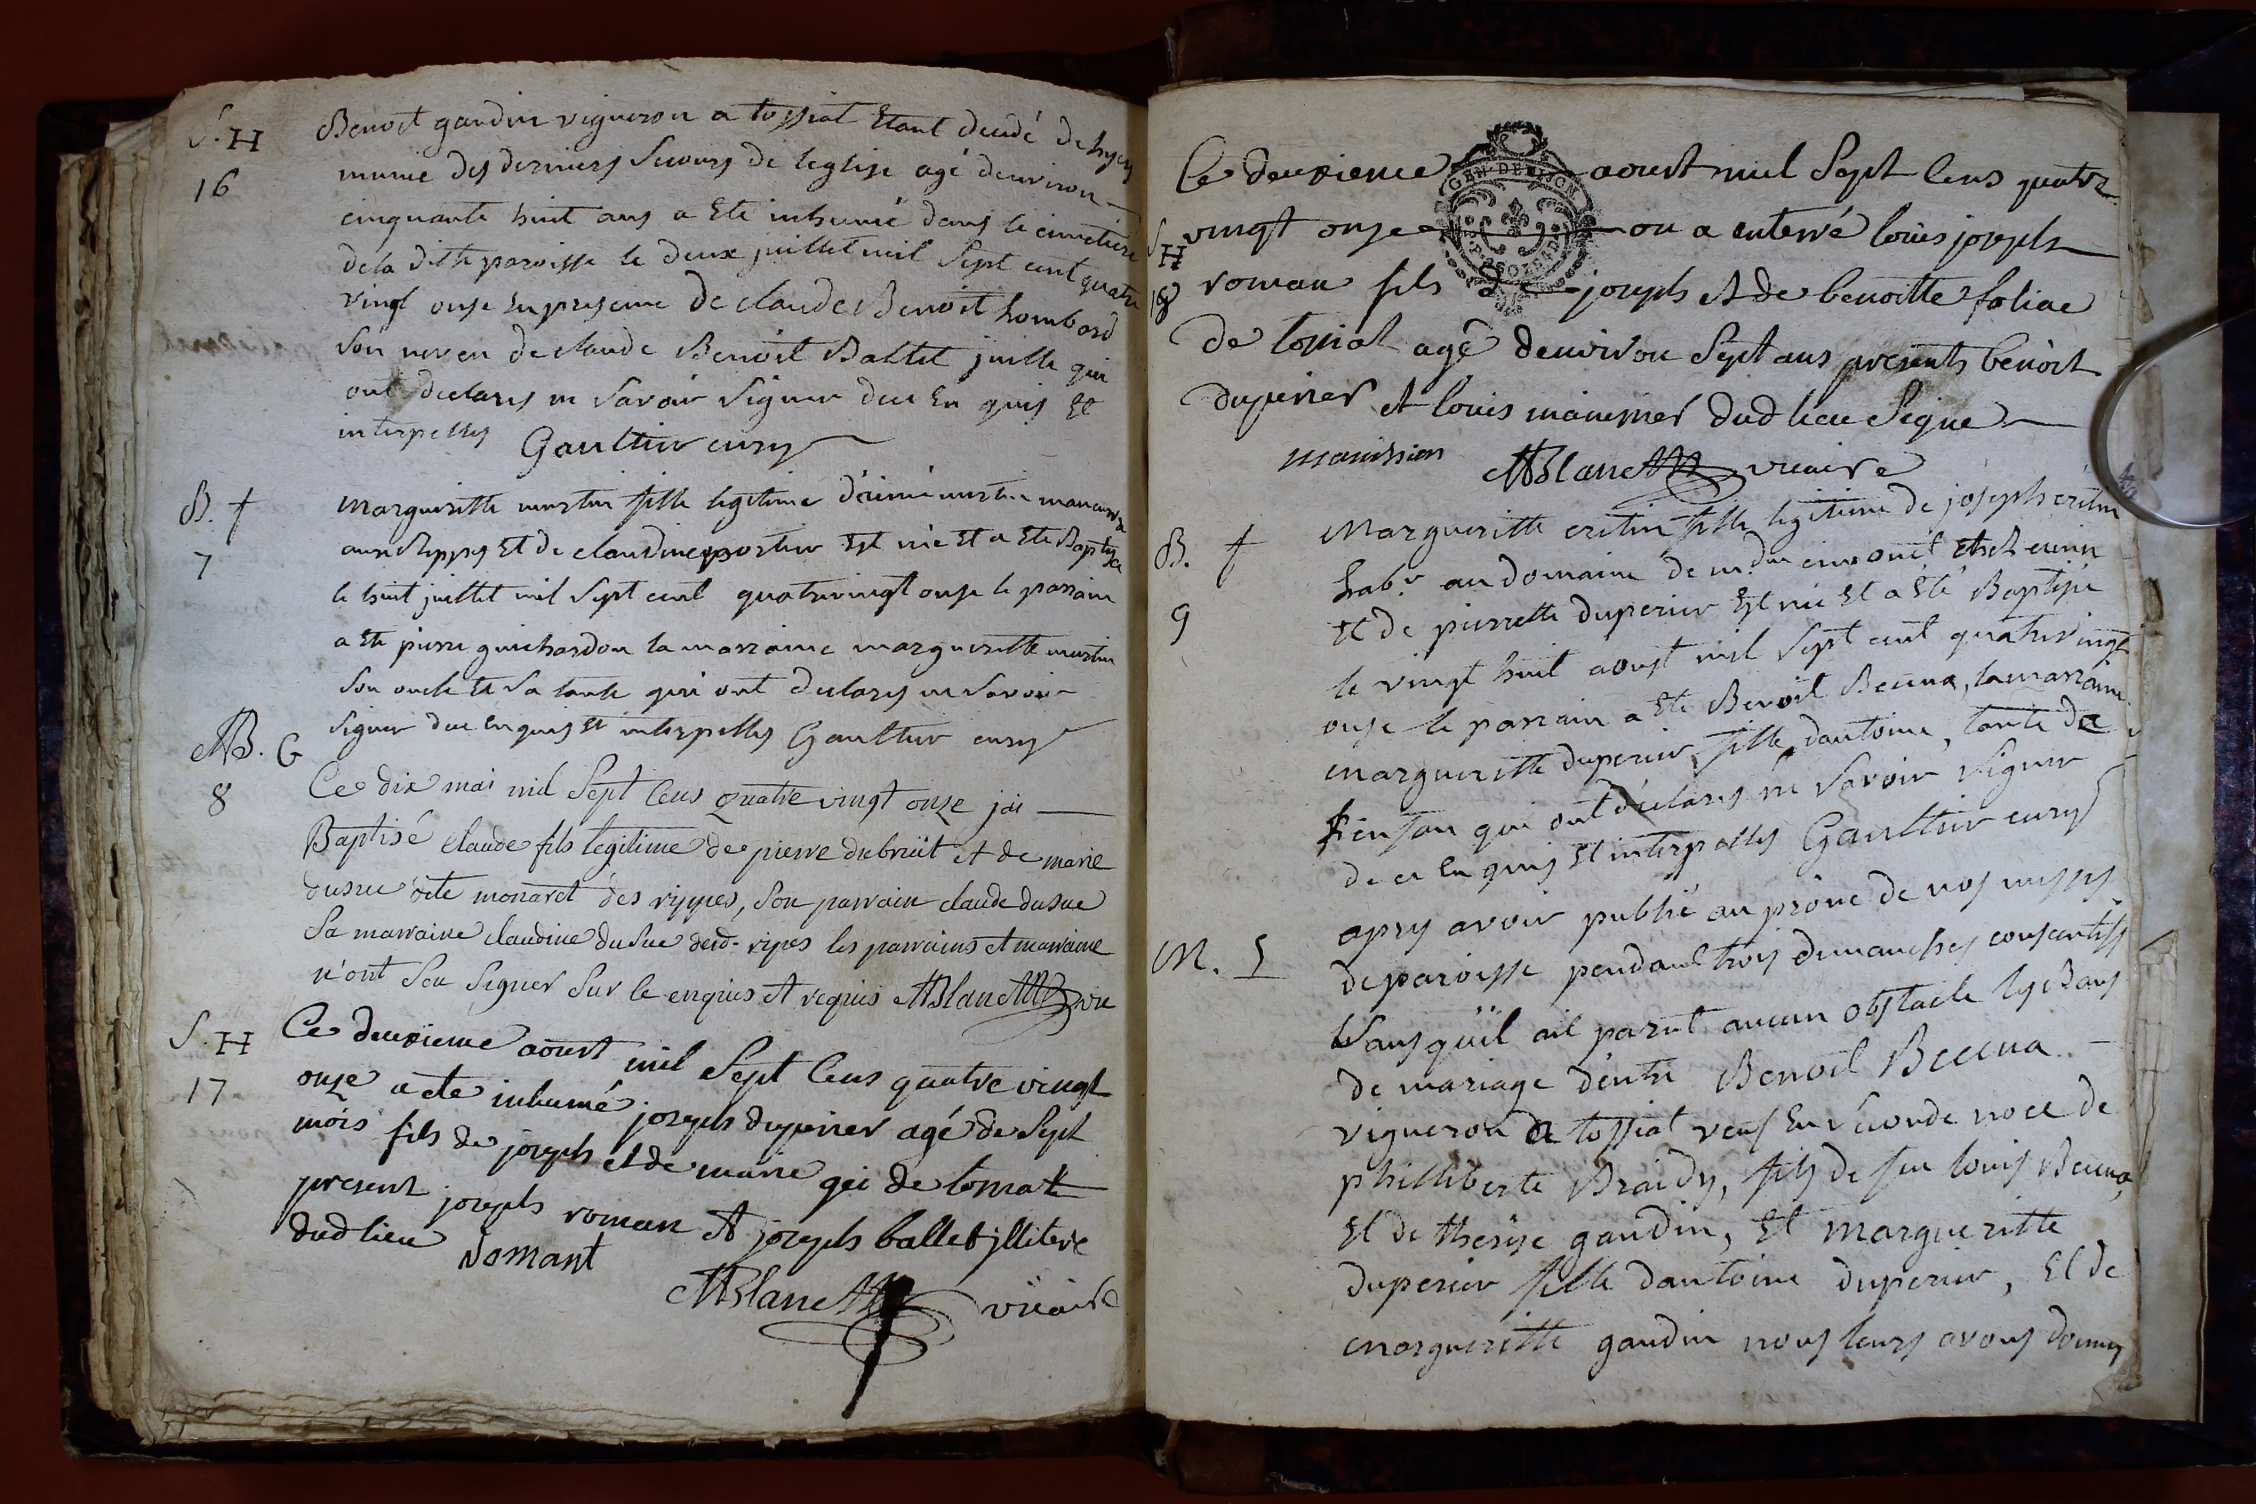 S. H
16
Benoit gaudin vigneron a tossiat Etant decedé de hyer
munie des derniers secours de leglise agé denviron
cinquante huit ans a Ete inhumé dans le cimetiere
de la ditte paroisse le deux juillet mil sept cent quatre
vingt onze en presence de claude Benoit hombord
son neveu de claude Benoit Ballet juille qui
ont declares ne savoir signer dece En quis Et
interpelles Gaultier curé
B. f
7
Margueritte mustin fille legitime d'aimé mustin
aux Rippes Et de claudine portier Est née Et a Ete Baptisée
le huit juillet mil sept cent quatrevingt onze le parrain
a Ete pierre guichardon la marraine margueritte mustin
son oncle Et sa tante qui ont declares ne savoir
signer dece Enquis Et interpelles Gaultier curé
B. G
8
Ce dix mai mil Sept Cens Quatre vingt onze jai
Baptisé claude fils legitime de pierre dubruit et de marie
dusuc dite monaret des rippes, son parrain claude dusuc
Sa marraine claudine dusuc desd. ripes les parrains et marraine
n'ont Seu Signer Sur le enquis et requis Blanc vic
S. H
17
Ce deuxieme aoust mil Sept Cens quatre vingt
onze a ete inhumé joseph duperier agé de Sept
mois fils de joseph et de marie gei de tossiat
present joseph roman et joseph ballet jlliteré
dud lieu Romant
Blanc vicaire
Ce deuxieme aoust mil Sept Cens quatre
GEN. DE DIJON
S
H
18
vingt onze on a enterré louis joseph
roman fils de joseph et de benoitte foliae
de tossiat agé denviron Sept ans presents benoit
duperier et louis manissier dud lieu Signe
manissier Blanc vicaire
B. f
9
Margueritte critin fille legitime de joseph critin
hab.r au domaine de
Et de pierrette duperier Est née Et a Eté Baptisée
le vingt huit aoust mil sept cent quatrevingt
onze le parrain a Ete Benoit Beccna, la marraine
margueritte duperier fille dantoine, tante de
l'enfan qui ont declares ne savoir signer
de ce Enquis Et interpelles Gaultier curé
M. 5
apres avoir publié au prône de nos messes
de paroisse pendant trois dimanches consecutifs
sans quil ait parut aucun obstacle les Bans
de mariage d'entre Benoit Beccna
vigneron de tossiat veuf En seconde noce de
philliberte Braidy, fils de feu louis Beccna,
Et de therese gaudin, Et Margueritte
duperier fille dantoine duperier, Et de
margueritte gaudin nous leurs avons donnés